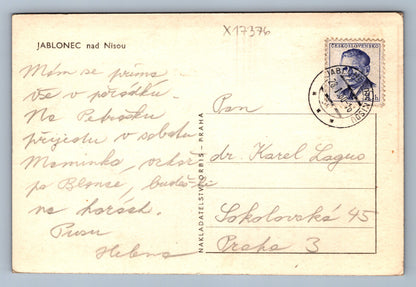 X17376
JABLONEC nad Nisou
ČESKOSLOVENSKO
JABLONEC
NISOU
Mám se prima
vše v pořádku.
Na Petrášku
přijedu v sobotu
Maminka,
po Blanse, budeš-li
na horách.
Pusu
Helena
NAKLADATELSTVÍ ORBIS - PRAHA
Pan
dr. Karel Lagus
Sokolovská 45
Praha 3